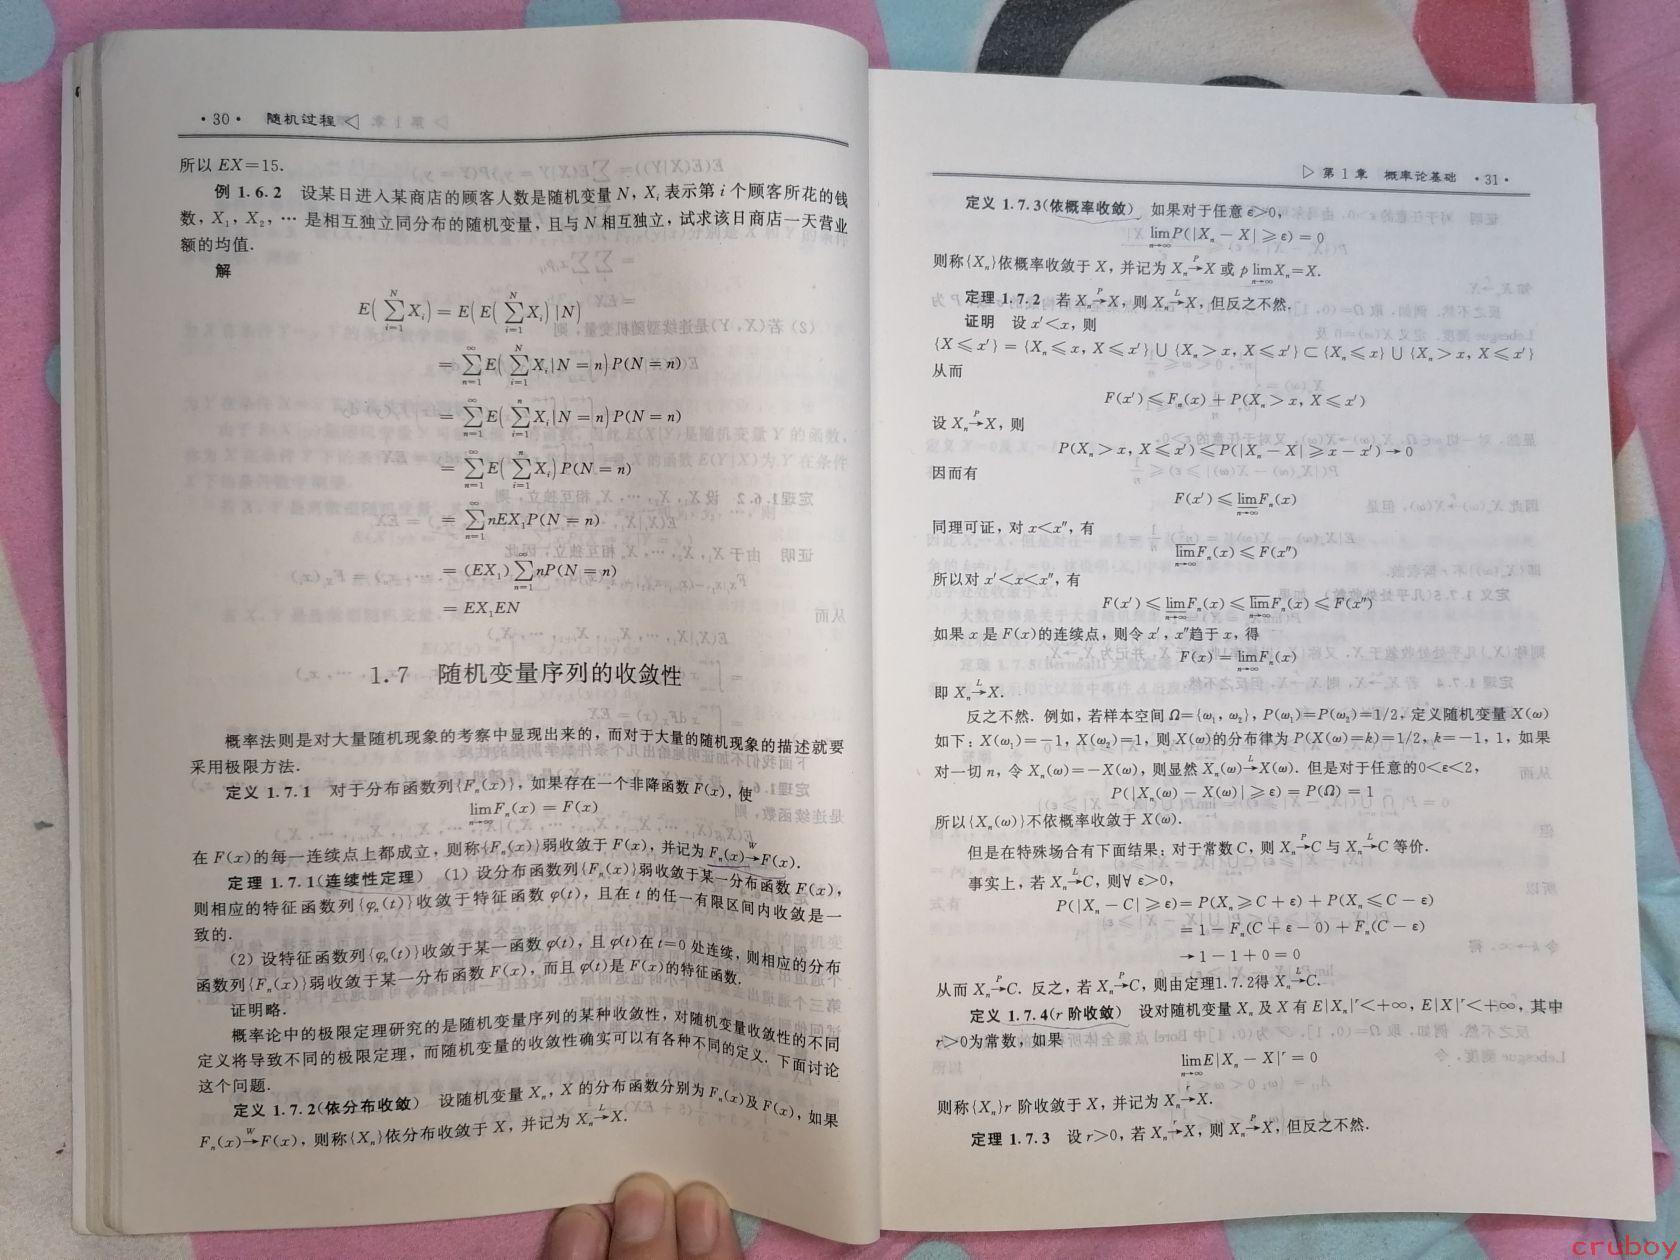 · 30 · 随机过程 ◁
所以 EX=15.
例 1.6.2 设某日进入某商店的顾客人数是随机变量 N, Xᵢ 表示第 i 个顾客所花的钱
数, X₁, X₂, … 是相互独立同分布的随机变量, 且与 N 相互独立, 试求该日商店一天营业
额的均值.
解
E(∑_{i=1}^{N} Xᵢ) = E(E(∑_{i=1}^{N} Xᵢ)|N)
= ∑_{n=1}^{∞} E(∑_{i=1}^{N} Xᵢ|N=n)P(N=n)
= ∑_{n=1}^{∞} E(∑_{i=1}^{n} Xᵢ|N=n)P(N=n)
= ∑_{n=1}^{∞} E(∑_{i=1}^{n} Xᵢ)P(N=n)
= ∑_{n=1}^{∞} nEX₁P(N=n)
= (EX₁)∑_{n=1}^{∞} nP(N=n)
= EX₁EN
1.7 随机变量序列的收敛性
概率法则是对大量随机现象的考察中显现出来的, 而对于大量的随机现象的描述就要
采用极限方法.
定义 1.7.1 对于分布函数列{Fₙ(x)}, 如果存在一个非降函数 F(x), 使
lim_{n→∞} Fₙ(x) = F(x)
在 F(x)的每一连续点上都成立, 则称{Fₙ(x)}弱收敛于 F(x), 并记为 Fₙ(x)→^W F(x).
定理 1.7.1(连续性定理) (1) 设分布函数列{Fₙ(x)}弱收敛于某一分布函数 F(x),
则相应的特征函数列{φₙ(t)}收敛于特征函数 φ(t), 且在 t 的任一有限区间内收敛是一
致的.
(2) 设特征函数列{φₙ(t)}收敛于某一函数 φ(t), 且 φ(t)在 t=0 处连续, 则相应的分布
函数列{Fₙ(x)}弱收敛于某一分布函数 F(x), 而且 φ(t)是 F(x)的特征函数.
证明略.
概率论中的极限定理研究的是随机变量序列的某种收敛性, 对随机变量收敛性的不同
定义将导致不同的极限定理, 而随机变量的收敛性确实可以有各种不同的定义. 下面讨论
这个问题.
定义 1.7.2(依分布收敛) 设随机变量 Xₙ, X 的分布函数分别为 Fₙ(x)及 F(x), 如果
Fₙ(x)→^W F(x), 则称{Xₙ}依分布收敛于 X, 并记为 Xₙ→^L X.
▷ 第 1 章 概率论基础 · 31 ·
定义 1.7.3(依概率收敛) 如果对于任意 ε>0,
lim_{n→∞} P(|Xₙ − X| ≥ ε) = 0
则称{Xₙ}依概率收敛于 X, 并记为 Xₙ→^P X 或 p lim_{n→∞} Xₙ=X.
定理 1.7.2 若 Xₙ→^P X, 则 Xₙ→^L X, 但反之不然.
证明 设 x′<x, 则
{X ≤ x′} = {Xₙ ≤ x, X ≤ x′} ∪ {Xₙ > x, X ≤ x′} ⊂ {Xₙ ≤ x} ∪ {Xₙ > x, X ≤ x′}
从而
F(x′) ≤ Fₙ(x) + P(Xₙ > x, X ≤ x′)
设 Xₙ→^P X, 则
P(Xₙ > x, X ≤ x′) ≤ P(|Xₙ − X| ≥ x − x′) → 0
因而有
F(x′) ≤ \underline{lim}_{n→∞} Fₙ(x)
同理可证, 对 x<x″, 有
\overline{lim}_{n→∞} Fₙ(x) ≤ F(x″)
所以对 x′<x<x″, 有
F(x′) ≤ \underline{lim}_{n→∞} Fₙ(x) ≤ \overline{lim}_{n→∞} Fₙ(x) ≤ F(x″)
如果 x 是 F(x)的连续点, 则令 x′, x″趋于 x, 得
F(x) = lim_{n→∞} Fₙ(x)
即 Xₙ→^L X.
反之不然. 例如, 若样本空间 Ω={ω₁, ω₂}, P(ω₁)=P(ω₂)=1/2, 定义随机变量 X(ω)
如下: X(ω₁)=−1, X(ω₂)=1, 则 X(ω)的分布律为 P(X(ω)=k)=1/2, k=−1, 1, 如果
对一切 n, 令 Xₙ(ω)=−X(ω), 则显然 Xₙ(ω)→^L X(ω). 但是对于任意的0<ε<2,
P(|Xₙ(ω) − X(ω)| ≥ ε) = P(Ω) = 1
所以{Xₙ(ω)}不依概率收敛于 X(ω).
但是在特殊场合有下面结果: 对于常数 C, 则 Xₙ→^P C 与 Xₙ→^L C 等价.
事实上, 若 Xₙ→^L C, 则∀ ε>0,
P(|Xₙ − C| ≥ ε) = P(Xₙ ≥ C + ε) + P(Xₙ ≤ C − ε)
= 1 − Fₙ(C + ε − 0) + Fₙ(C − ε)
→ 1 − 1 + 0 = 0
从而 Xₙ→^P C. 反之, 若 Xₙ→^P C, 则由定理1.7.2得 Xₙ→^L C.
定义 1.7.4(r 阶收敛) 设对随机变量 Xₙ 及 X 有 E|Xₙ|^r<+∞, E|X|^r<+∞, 其中
r>0为常数, 如果
lim_{n→∞} E|Xₙ − X|^r = 0
则称{Xₙ}r 阶收敛于 X, 并记为 Xₙ→^r X.
定理 1.7.3 设 r>0, 若 Xₙ→^r X, 则 Xₙ→^P X, 但反之不然.
cruboy